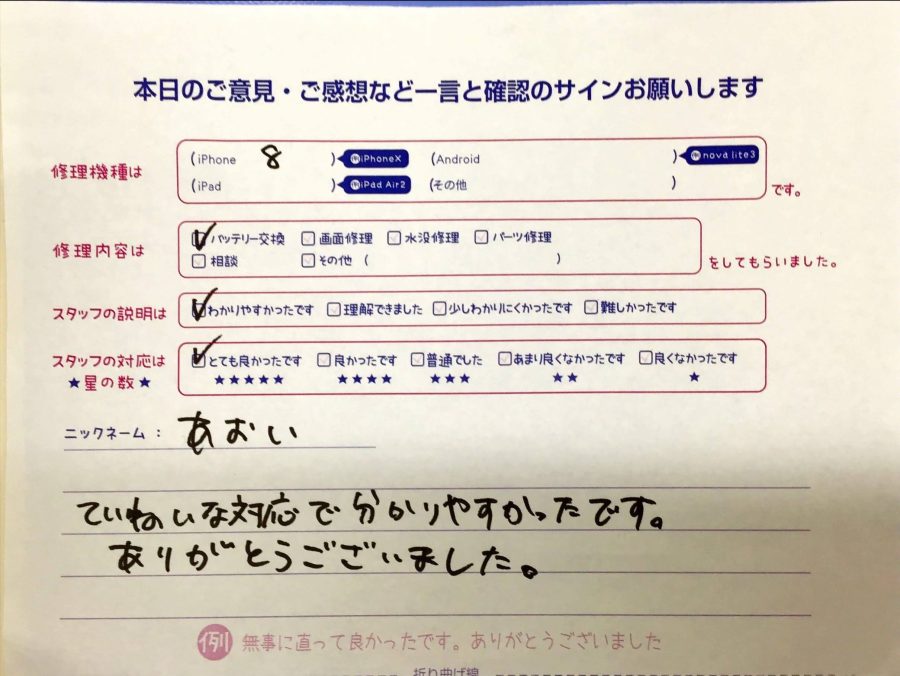 本日のご意見・ご感想など一言と確認のサインお願いします
修理機種は (iPhone 8 ) 例iPhoneX (Android ) 例nova lite3
(iPad ) 例iPad Air2 (その他 ) です。
修理内容は ☑バッテリー交換 □画面修理 □水没修理 □パーツ修理
□相談 □その他 ( ) をしてもらいました。
スタッフの説明は ☑わかりやすかったです □理解できました □少しわかりにくかったです □難しかったです
スタッフの対応は ☑とても良かったです □良かったです □普通でした □あまり良くなかったです □良くなかったです
★星の数★ ★★★★★ ★★★★ ★★★ ★★ ★
ニックネーム： あおい
ていねいな対応で分かりやすかったです。
ありがとうございました。
例 無事に直って良かったです。ありがとうございました
折り曲げ線